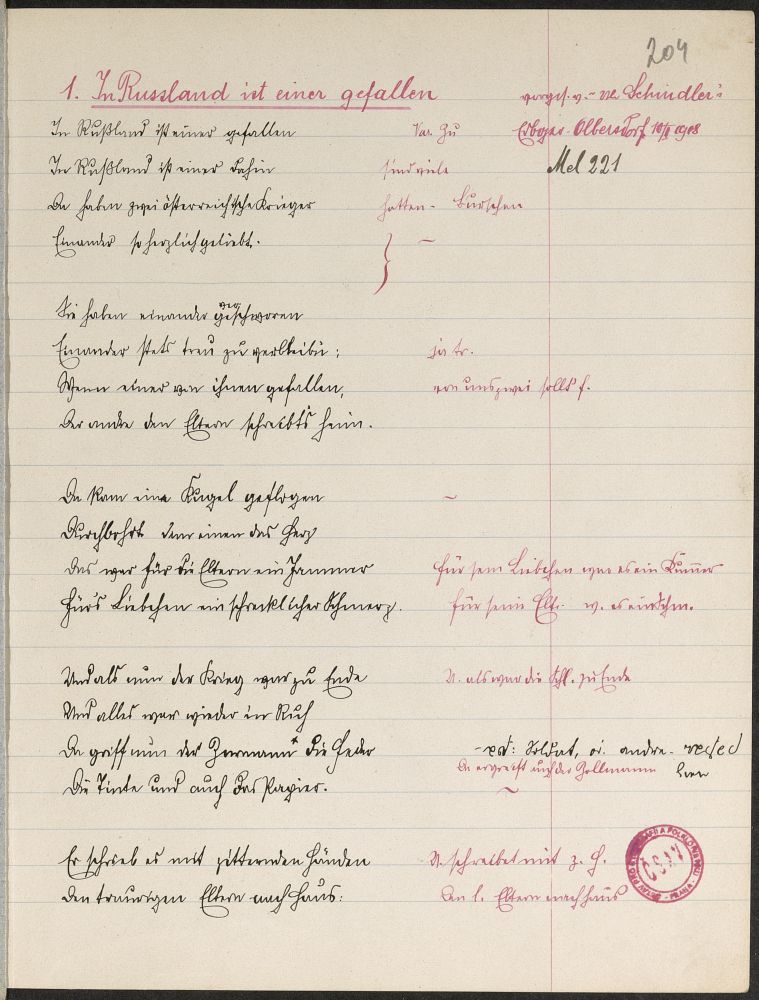 204
1. In Russland ist einer gefallen
vorges. v. Schindler:
Olbersdorf 1908
In Rußland ist einer gefallen
Var. Zu
In Rußland ist einer dahin
sind viele
Mel 221
Da haben zwei österreichische Krieger
hatten - Burschen
Einander so herzlich geliebt.
Sie haben einander geschworen
ver
Einander stets treu zu verbleibn;
ja tr.
Wenn einer von ihnen gefallen,
von uns zwei sollt f.
Der andre den Eltern schreibt's heim.
Da kam eine Kugel geflogen
Durchbohrt dem einen das Herz
Das war für die Eltern ein Jammer
für sein Liebchen war es ein Kummer
Für's Liebchen ein schrecklicher Schmerz.
für seine Elt. w. es ein Schm.
Und als nun der Krieg war zu Ende
U. als war die Schl. zu Ende
Und alles war wieder in Ruh
Da griff nun der die Feder
Soldat, od. andre
Da ergreift auch der Zollmann
Die Tinte und auch das Papier.
Er schrieb es mit zitternden Händen
U. schreibet mit z. H.
Den traurigen Eltern nach Haus:
Den l. Eltern nach haus
ČSAV